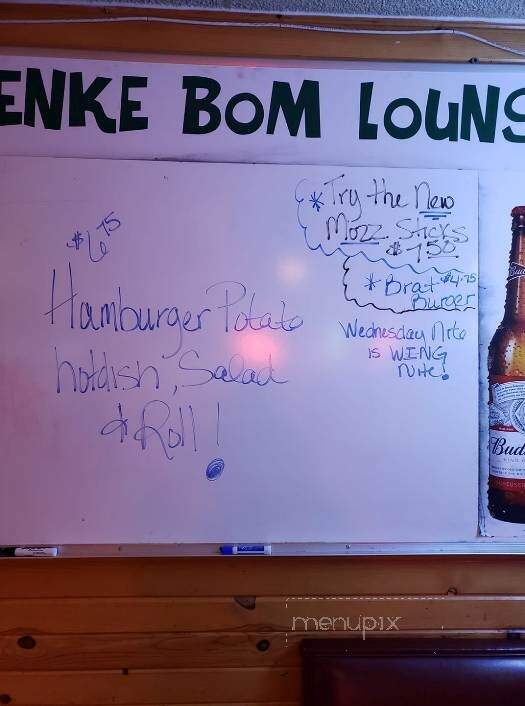 ENKE BOM LOUNG
$6 75
Hamburger Potato
hotdish, Salad
& Roll!
* Try the New
Mozz Sticks
$7.50
* Brat $4.75
Burger
Wednesday Nite
is WING
Nite!
Bud
menupix